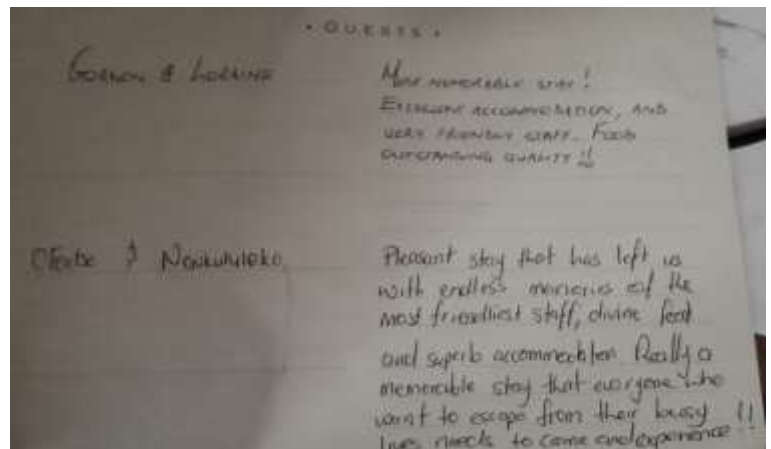 • GUESTS •
GORDON & LORAINE
MOST MEMORABLE STAY!
EXCELLENT ACCOMMODATION, AND
VERY FRIENDLY STAFF. FOOD
OUTSTANDING QUALITY !!
& Nonkululeko
Pleasant stay that has left us
with endless memories of the
most friendliest staff, divine food
and superb accommodation. Really a
memorable stay that everyone who
want to escape from their busy
lives needs to come and experience !!